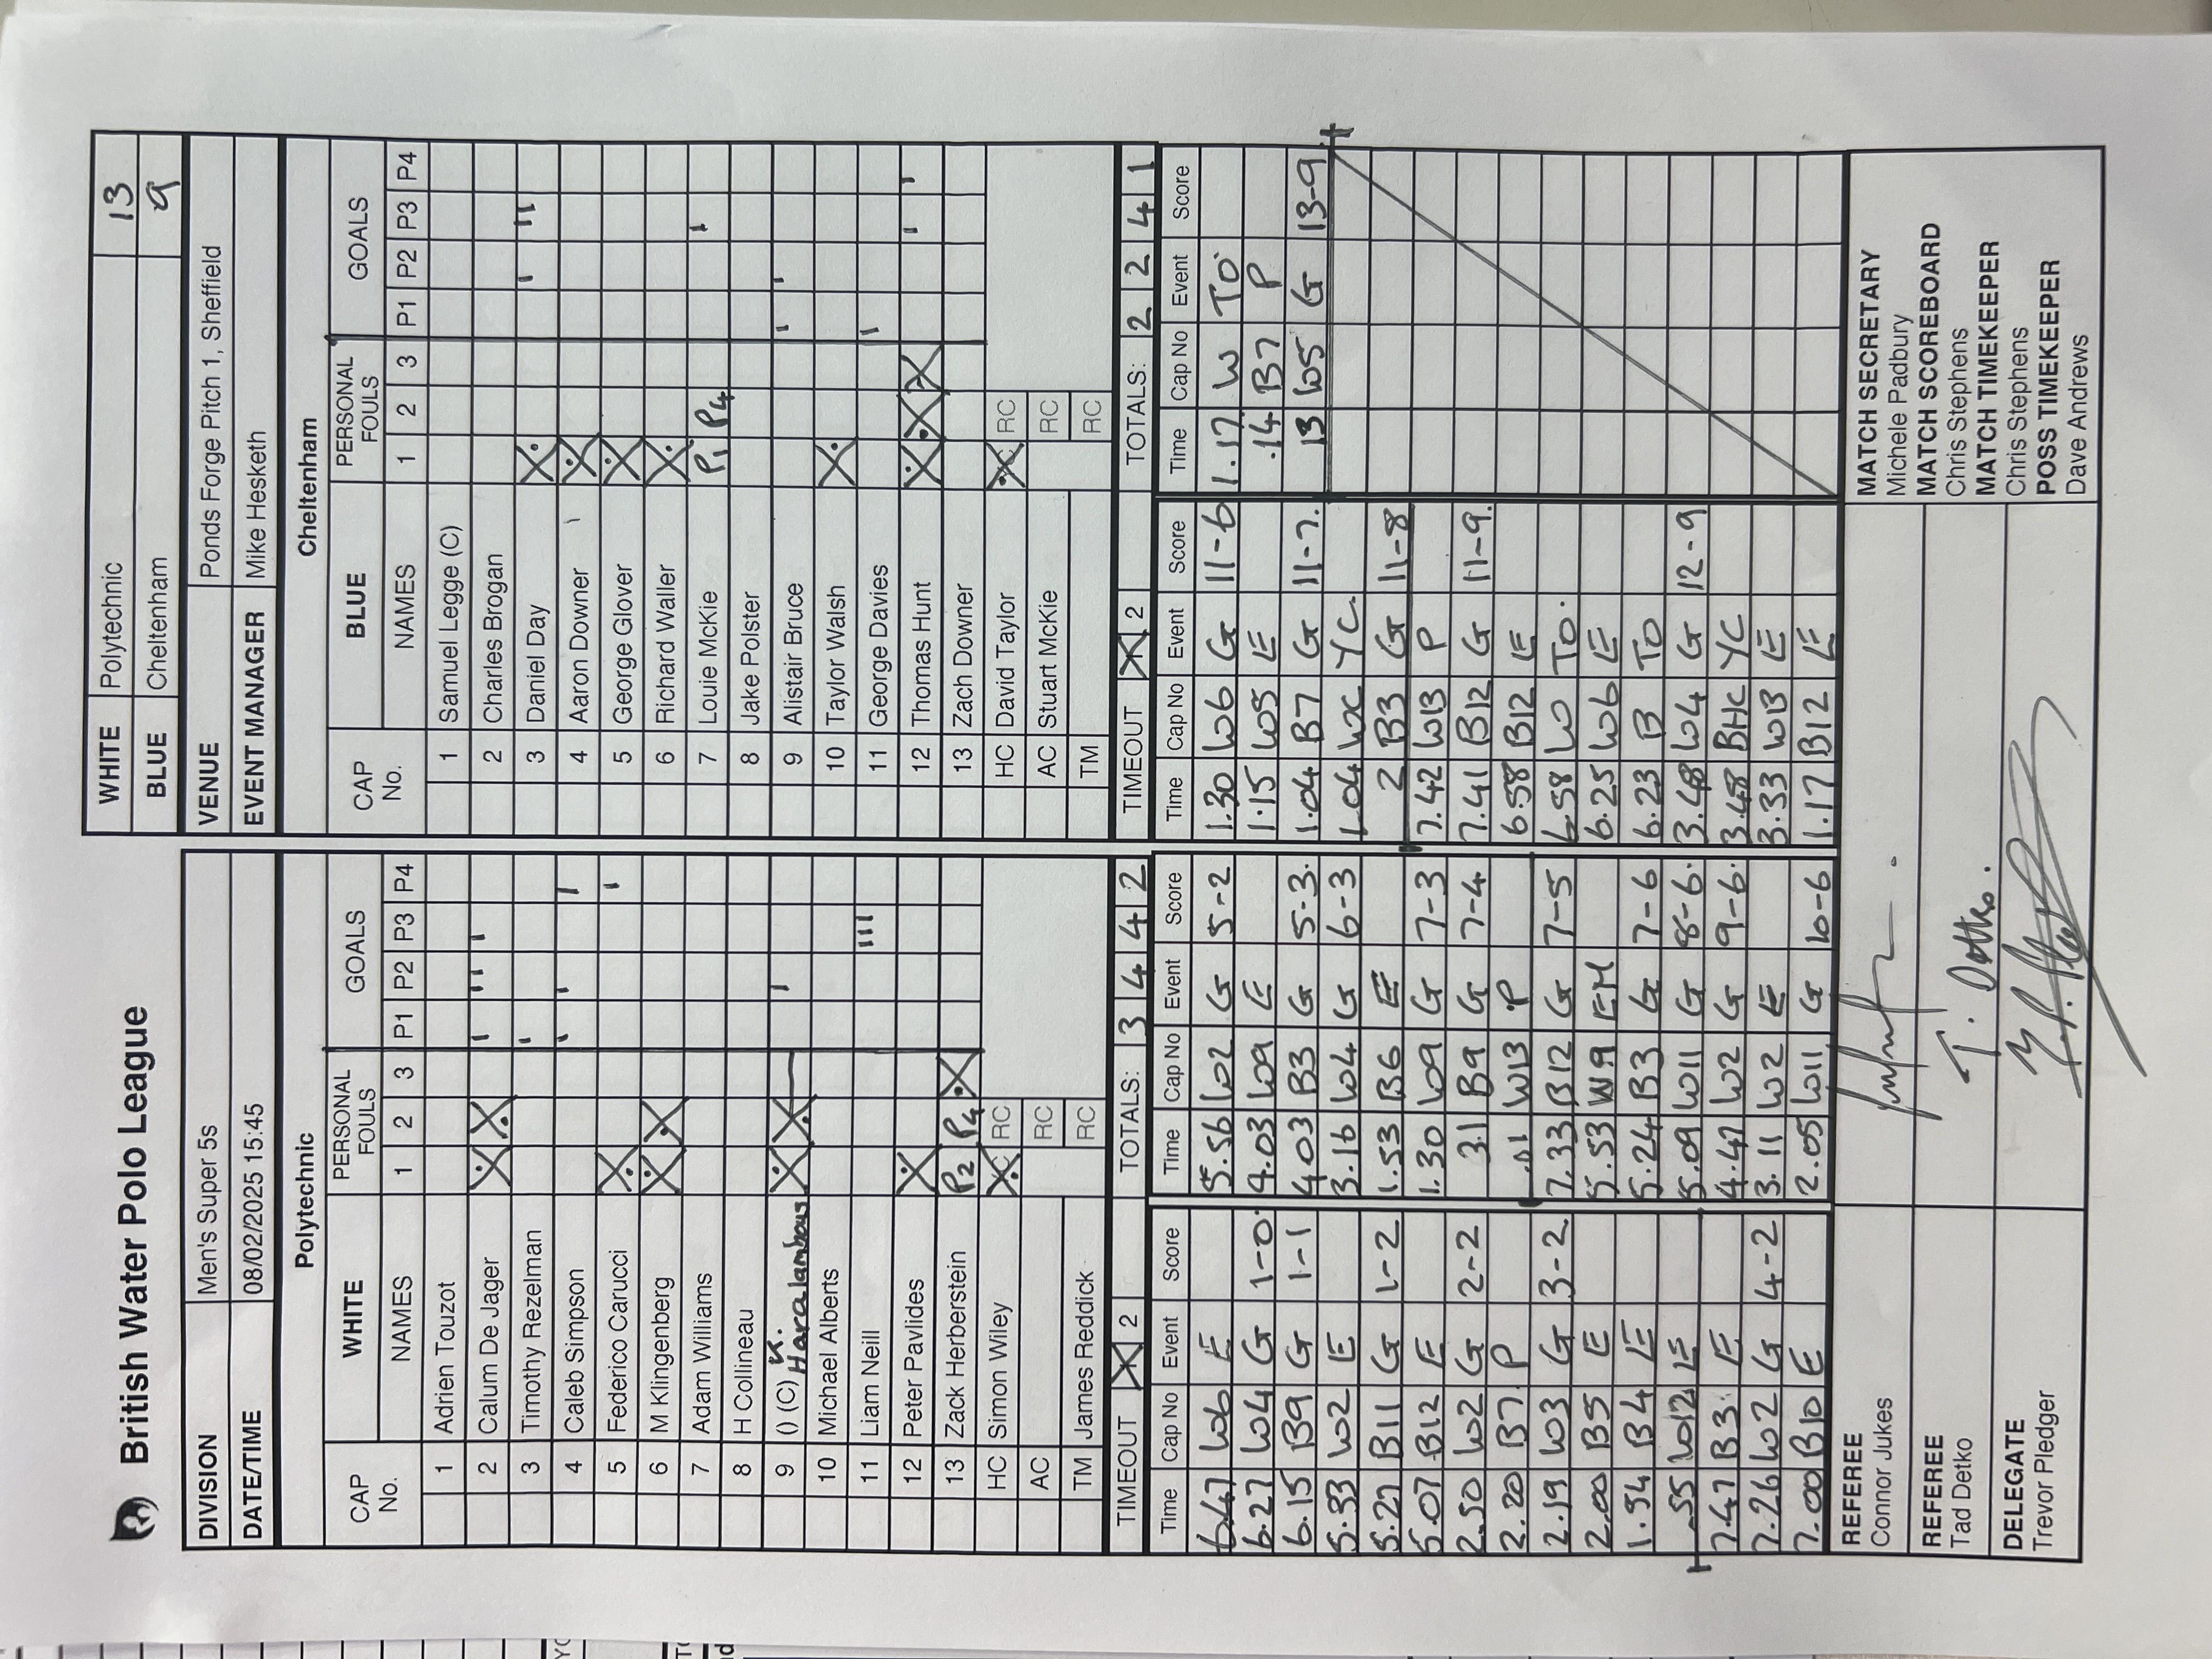 British Water Polo League
WHITE Polytechnic 13
BLUE Cheltenham 9
DIVISION Men's Super 5s
DATE/TIME 08/02/2025 15:45
VENUE Ponds Forge Pitch 1, Sheffield
EVENT MANAGER Mike Hesketh
Polytechnic
CAP No. WHITE NAMES PERSONAL FOULS 1 2 3 GOALS P1 P2 P3 P4
1 Adrien Touzot
2 Calum De Jager X X I II I
3 Timothy Rezelman I
4 Caleb Simpson I I I
5 Federico Carucci X I
6 M Klingenberg X X
7 Adam Williams
8 H Collineau
9 () (C) K. Haralambous X X I
10 Michael Alberts
11 Liam Neill III
12 Peter Pavlides X
13 Zack Herberstein P2 P4 X
HC Simon Wiley RC
AC RC
TM James Reddick RC
TIMEOUT X 2 TOTALS: 3 4 4 2
Cheltenham
CAP No. BLUE NAMES PERSONAL FOULS 1 2 3 GOALS P1 P2 P3 P4
1 Samuel Legge (C)
2 Charles Brogan
3 Daniel Day X I II
4 Aaron Downer X
5 George Glover X
6 Richard Waller X
7 Louie McKie P1 P4 I
8 Jake Polster
9 Alistair Bruce I I
10 Taylor Walsh X
11 George Davies I
12 Thomas Hunt X X X I I
13 Zach Downer
HC David Taylor RC
AC Stuart McKie RC
TM RC
TIMEOUT X 2 TOTALS: 2 2 4 1
Time Cap No Event Score
6.47 W6 E
6.27 W4 G 1-0
6.15 B9 G 1-1
5.33 W2 E
5.27 B11 G 1-2
5.07 B12 E
2.50 W2 G 2-2
2.20 B7 P
2.19 W3 G 3-2
2.00 B5 E
1.54 B4 E
.55 W12 E
7.47 B3 E
7.26 W2 G 4-2
7.00 B10 E
Time Cap No Event Score
5.56 W2 G 5-2
4.03 W9 E
4.03 B3 G 5-3
3.16 W4 G 6-3
1.53 B6 E
1.30 W9 G 7-3
31 B9 G 7-4
.01 W13 P
7.33 B12 G 7-5
5.53 W9 EM
5.24 B3 G 7-6
5.09 W11 G 8-6
4.47 W2 G 9-6
3.11 W2 E
2.05 W11 G 10-6
Time Cap No Event Score
1.30 W6 G 11-6
1.15 W5 E
1.04 B7 G 11-7
1.04 WC YC
2 B3 G 11-8
7.42 W13 P
7.41 B12 G 11-9
6.58 B12 E
6.58 W TO
6.25 W6 E
6.23 B TO
3.48 W4 G 12-9
3.48 BHC YC
3.33 W13 E
1.17 B12 E
Time Cap No Event Score
1.17 W TO
.14 B7 P
13 W5 G 13-9
REFEREE
Connor Jukes
REFEREE
Tad Detko
T. Detko.
DELEGATE
Trevor Pledger
MATCH SECRETARY
Michele Padbury
MATCH SCOREBOARD
Chris Stephens
MATCH TIMEKEEPER
Chris Stephens
POSS TIMEKEEPER
Dave Andrews